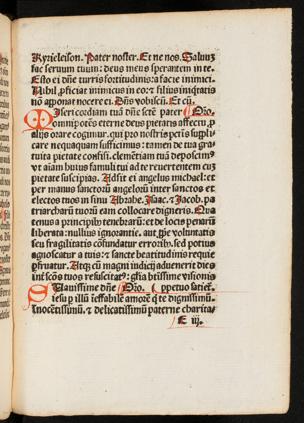 Kyrieleison. Pater noster. Et ne nos. Saluū
fac seruum tuum: deus meus sperantem in te.
Esto ei dñe turris fortitudinis: a facie inimici.
Nihil ꝓficiat inimicus in eo: ⁊ filius iniqtatis
nō apponat nocere ei. Dñs vobiscū. Et cū.
Misericordiam tuā dñe sctē pater Oro.
omnipotēs eterne deus pietatis affectu, ꝓ
alijs orare cogimur. qui pro nostris petis supli
care nequaquam sufficimus: tamen de tua gra
tuita pietate confisi. clementiam tuā deposcim⁹
vt aīam huius famuli tui ad te reuertentem cuꝫ
pietate suscipias. Adsit ei angelus michael: et
per manus sanctorū angelorū inter sanctos et
electos tuos in sinu Abrahe. Isaac. ⁊ Jacob. pa
triarcharū tuorū eam collocare digneris. Qua
tenus a principib⁹ tenebrarū: et de locis penarū
liberata: nullius ignorantie. aut ꝓprie voluntatis
seu fragilitatis cōfundatur erroribꝰ. sed potius
agnoscatur a tuis: ⁊ sancte beatitudinis requie
ꝑfruatur. Atqꝫ cū magni iudicij aduenerit dies
int̄ scōs tuos resuscitat⁹: glīa
Suauissime dñe Oro.
iesu ꝑ illū īeffabilē amorē ꝗ te dignissimū.
Inocētissimū. ⁊ delicatissimū paterne charita-
E iij.